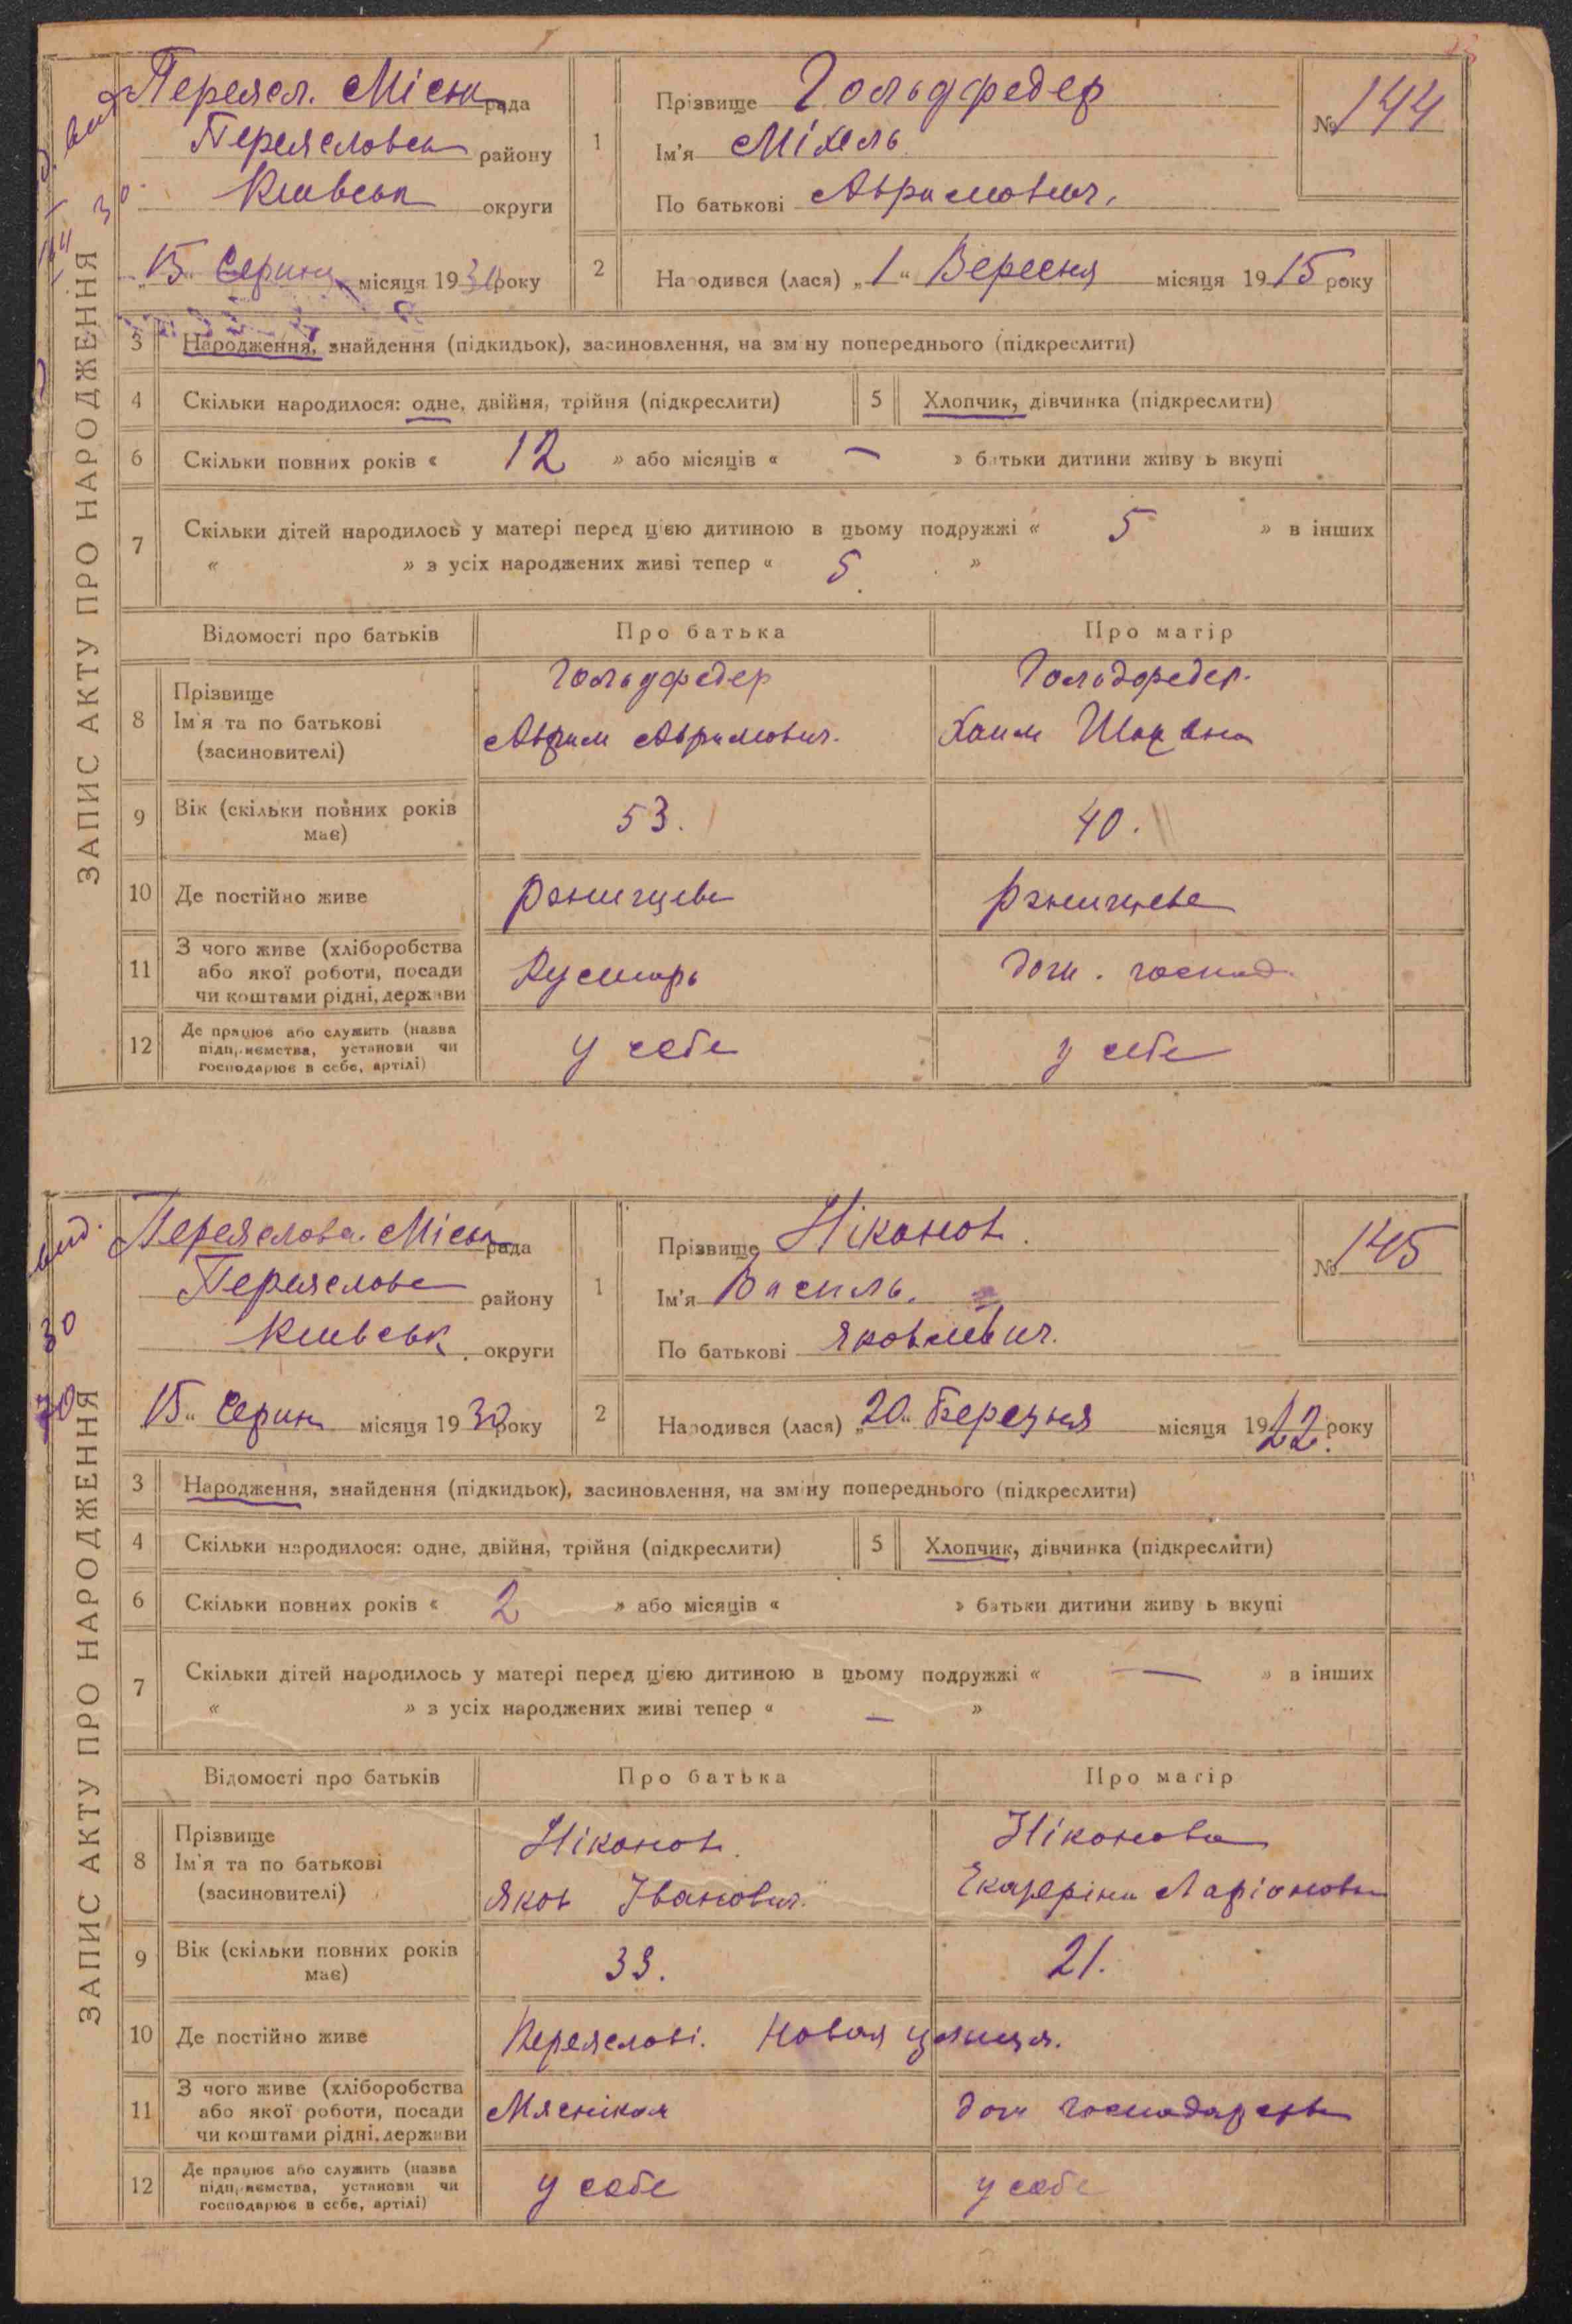 ЗАПИС АКТУ ПРО НАРОДЖЕННЯ
Переясл. Міськ рада
Переясловськ району
Київськ округи
„15„ Серпня місяця 1930 року
1
Прізвище Гольдфедер
Ім'я Міхель
По батькові Аврамович.
№ 144
2
Народився (лася) „1“ Вересня місяця 1915 року
3 Народження, знайдення (підкидьок), засиновлення, на зміну попереднього (підкреслити)
4 Скільки народилося: одне, двійня, трійня (підкреслити) 5 Хлопчик, дівчинка (підкреслити)
6 Скільки повних років « 12 » або місяців « — » батьки дитини живуть вкупі
7 Скільки дітей народилось у матері перед цією дитиною в цьому подружжі « 5 » в інших
« » з усіх народжених живі тепер « 5. »
Відомості про батьків Про батька Про матір
8 Прізвище Гольдфедер Гольдфедер.
Ім'я та по батькові Аврам Аврамович.
(засиновителі)
9 Вік (скільки повних років має) 53. 40.
10 Де постійно живе
11 З чого живе (хліборобства
або якої роботи, посади Кустарь дом. господ.
чи коштами рідні, держави
12 Де працює або служить (назва
підприємства, установи чи у себе у себе
господарює в себе, артілі)
ЗАПИС АКТУ ПРО НАРОДЖЕННЯ
вид.
30
Переяслова. Міськ рада
Переяслове району
Київськ. округи
15„ Серпня місяця 1930 року
1
Прізвище Ніконов.
Ім'я Василь.
По батькові Яковлевич.
№ 145
2
Народився (лася) „20„ Березня місяця 1922. року
3 Народження, знайдення (підкидьок), засиновлення, на зміну попереднього (підкреслити)
4 Скільки народилося: одне, двійня, трійня (підкреслити) 5 Хлопчик, дівчинка (підкреслити)
6 Скільки повних років « 2 » або місяців « » батьки дитини живуть вкупі
7 Скільки дітей народилось у матері перед цією дитиною в цьому подружжі « — » в інших
« » з усіх народжених живі тепер « — »
Відомості про батьків Про батька Про матір
8 Прізвище Ніконов. Ніконова
Ім'я та по батькові Яков Іванович. Екатеріна Ларіоновн
(засиновителі)
9 Вік (скільки повних років має) 33. 21.
10 Де постійно живе Переяслові. Новая улиця.
11 З чого живе (хліборобства
або якої роботи, посади Мясніком дом господарств
чи коштами рідні, держави
12 Де працює або служить (назва
підприємства, установи чи у себе у себе
господарює в себе, артілі)